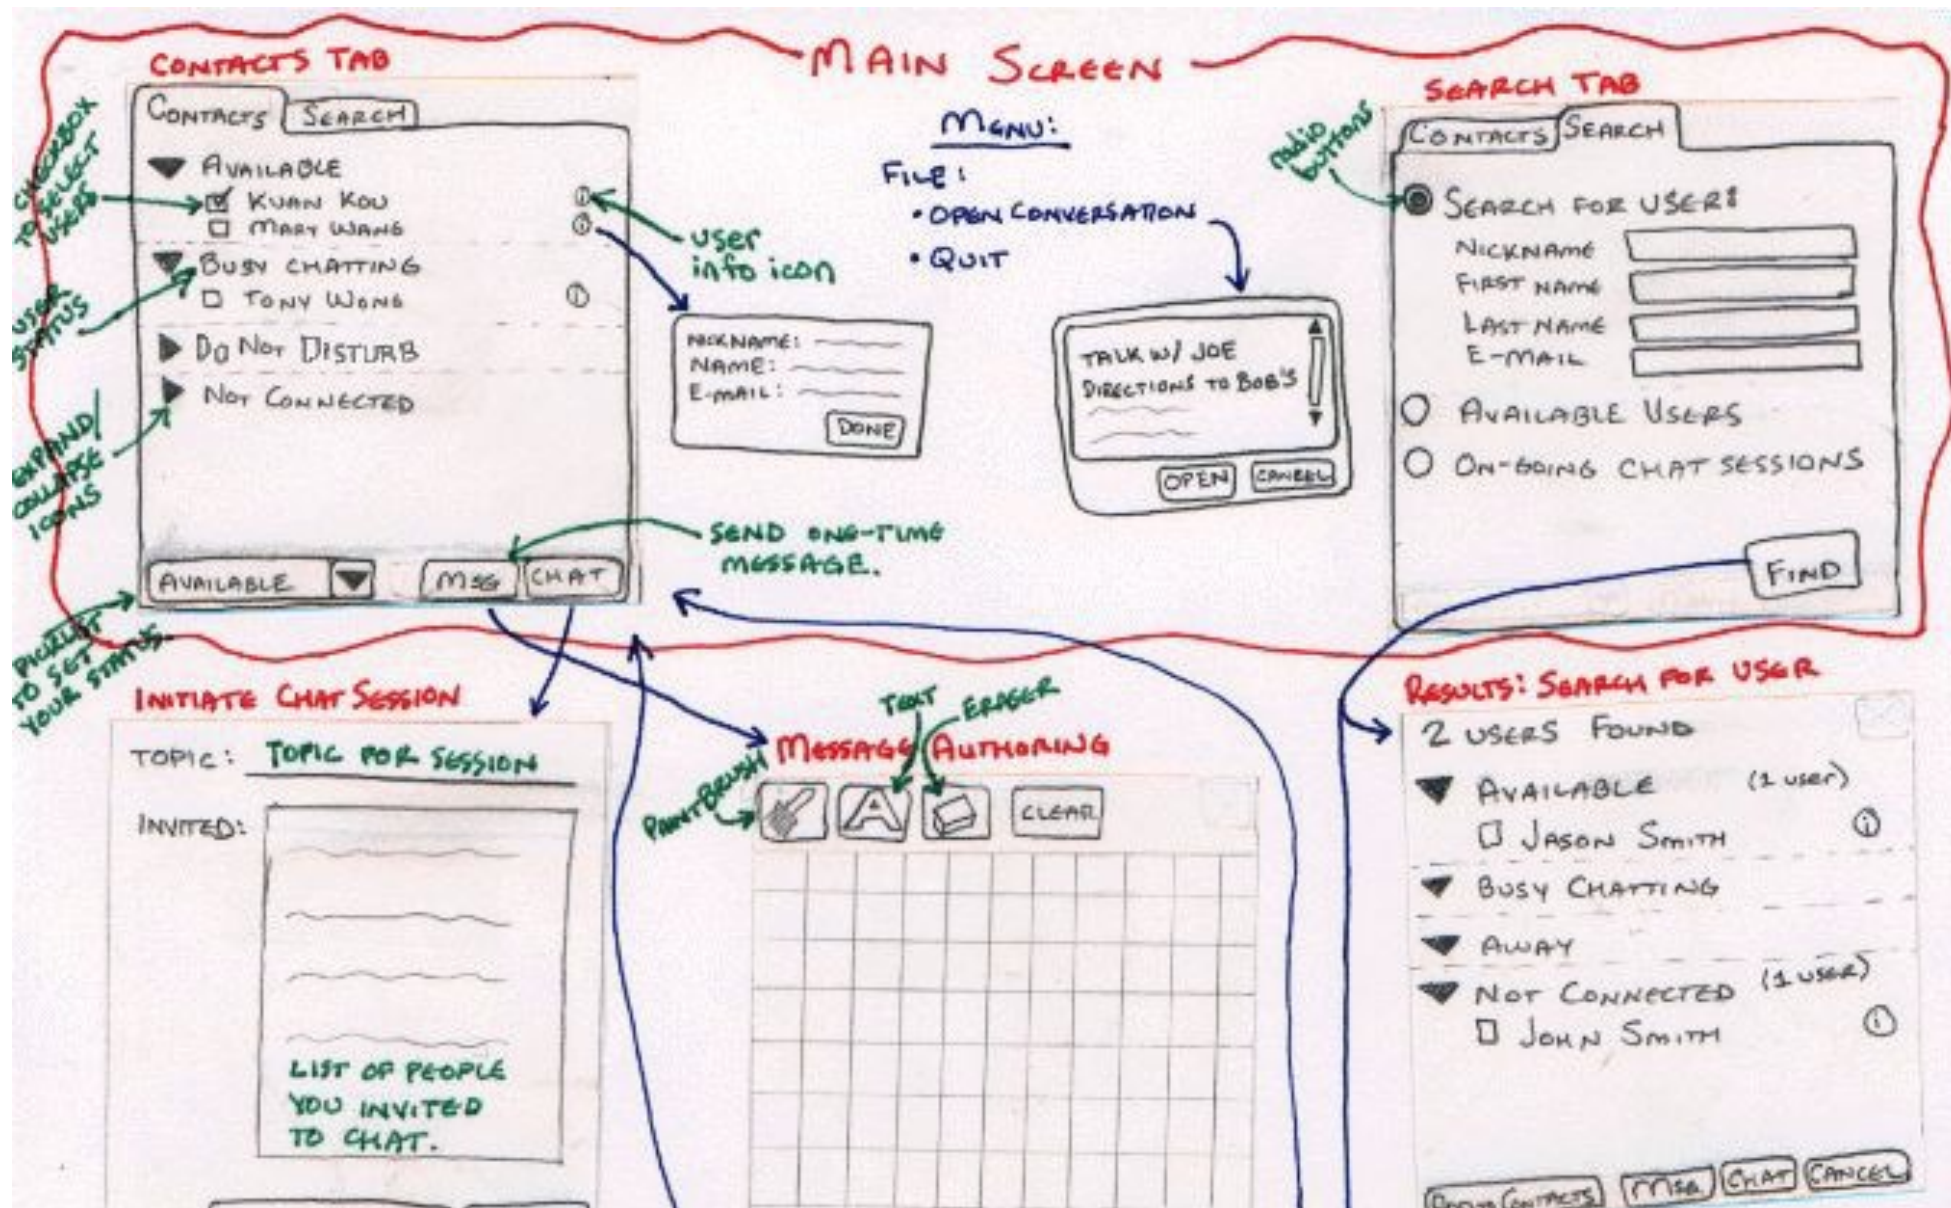 MAIN SCREEN
CONTACTS TAB
CONTACTS
SEARCH
AVAILABLE
KUAN KOU
MARY WANG
BUSY CHATTING
TONY WONG
DO NOT DISTURB
NOT CONNECTED
AVAILABLE
MSG
CHAT
CHECKBOX
TO SELECT
USERS
USER
STATUS
EXPAND/
COLLAPSE
ICONS
PICKLIST
TO SET
YOUR STATUS
user
info icon
SEND ONE-TIME
MESSAGE.
NICKNAME:
NAME:
E-MAIL:
DONE
MENU:
FILE:
• OPEN CONVERSATION
• QUIT
TALK W/ JOE
DIRECTIONS TO BOB'S
OPEN
CANCEL
SEARCH TAB
radio
buttons
CONTACTS
SEARCH
SEARCH FOR USER:
NICKNAME
FIRST NAME
LAST NAME
E-MAIL
AVAILABLE USERS
ON-GOING CHAT SESSIONS
FIND
INITIATE CHAT SESSION
TOPIC: TOPIC FOR SESSION
INVITED:
LIST OF PEOPLE
YOU INVITED
TO CHAT.
MESSAGE AUTHORING
PAINTBRUSH
TEXT
ERASER
A
CLEAR
RESULTS: SEARCH FOR USER
2 USERS FOUND
AVAILABLE (1 user)
JASON SMITH
BUSY CHATTING
AWAY
NOT CONNECTED (1 USER)
JOHN SMITH
CONTACTS
MSG
CHAT
CANCEL